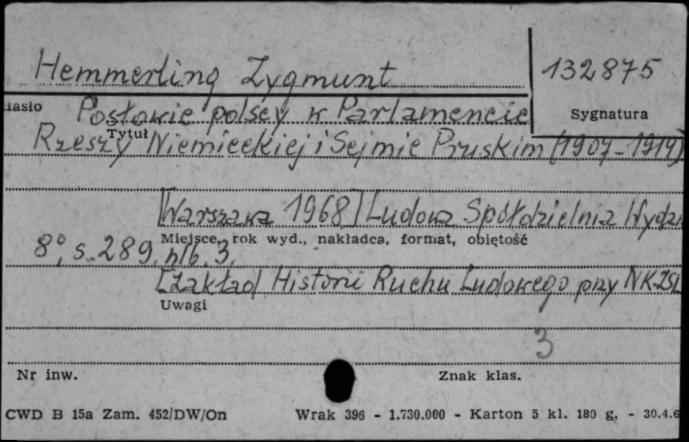 Hemmerling Zygmunt
132875
Sygnatura
Hasło Posłowie polscy w Parlamencie
Rzeszy Niemieckiej i Sejmie Pruskim (1907-1914)
Tytuł
[Warszawa 1968] Ludowa Spółdzielnia Wydaw
Miejsce, rok wyd., nakładca, format, objętość
8°, s. 289, nlb. 3,
[Zakład Historii Ruchu Ludowego przy NK ZSL
Uwagi
3
Nr inw.
Znak klas.
CWD B 15a Zam. 452/DW/On Wrak 396 - 1.730.000 - Karton 5 kl. 180 g. - 30.4.6